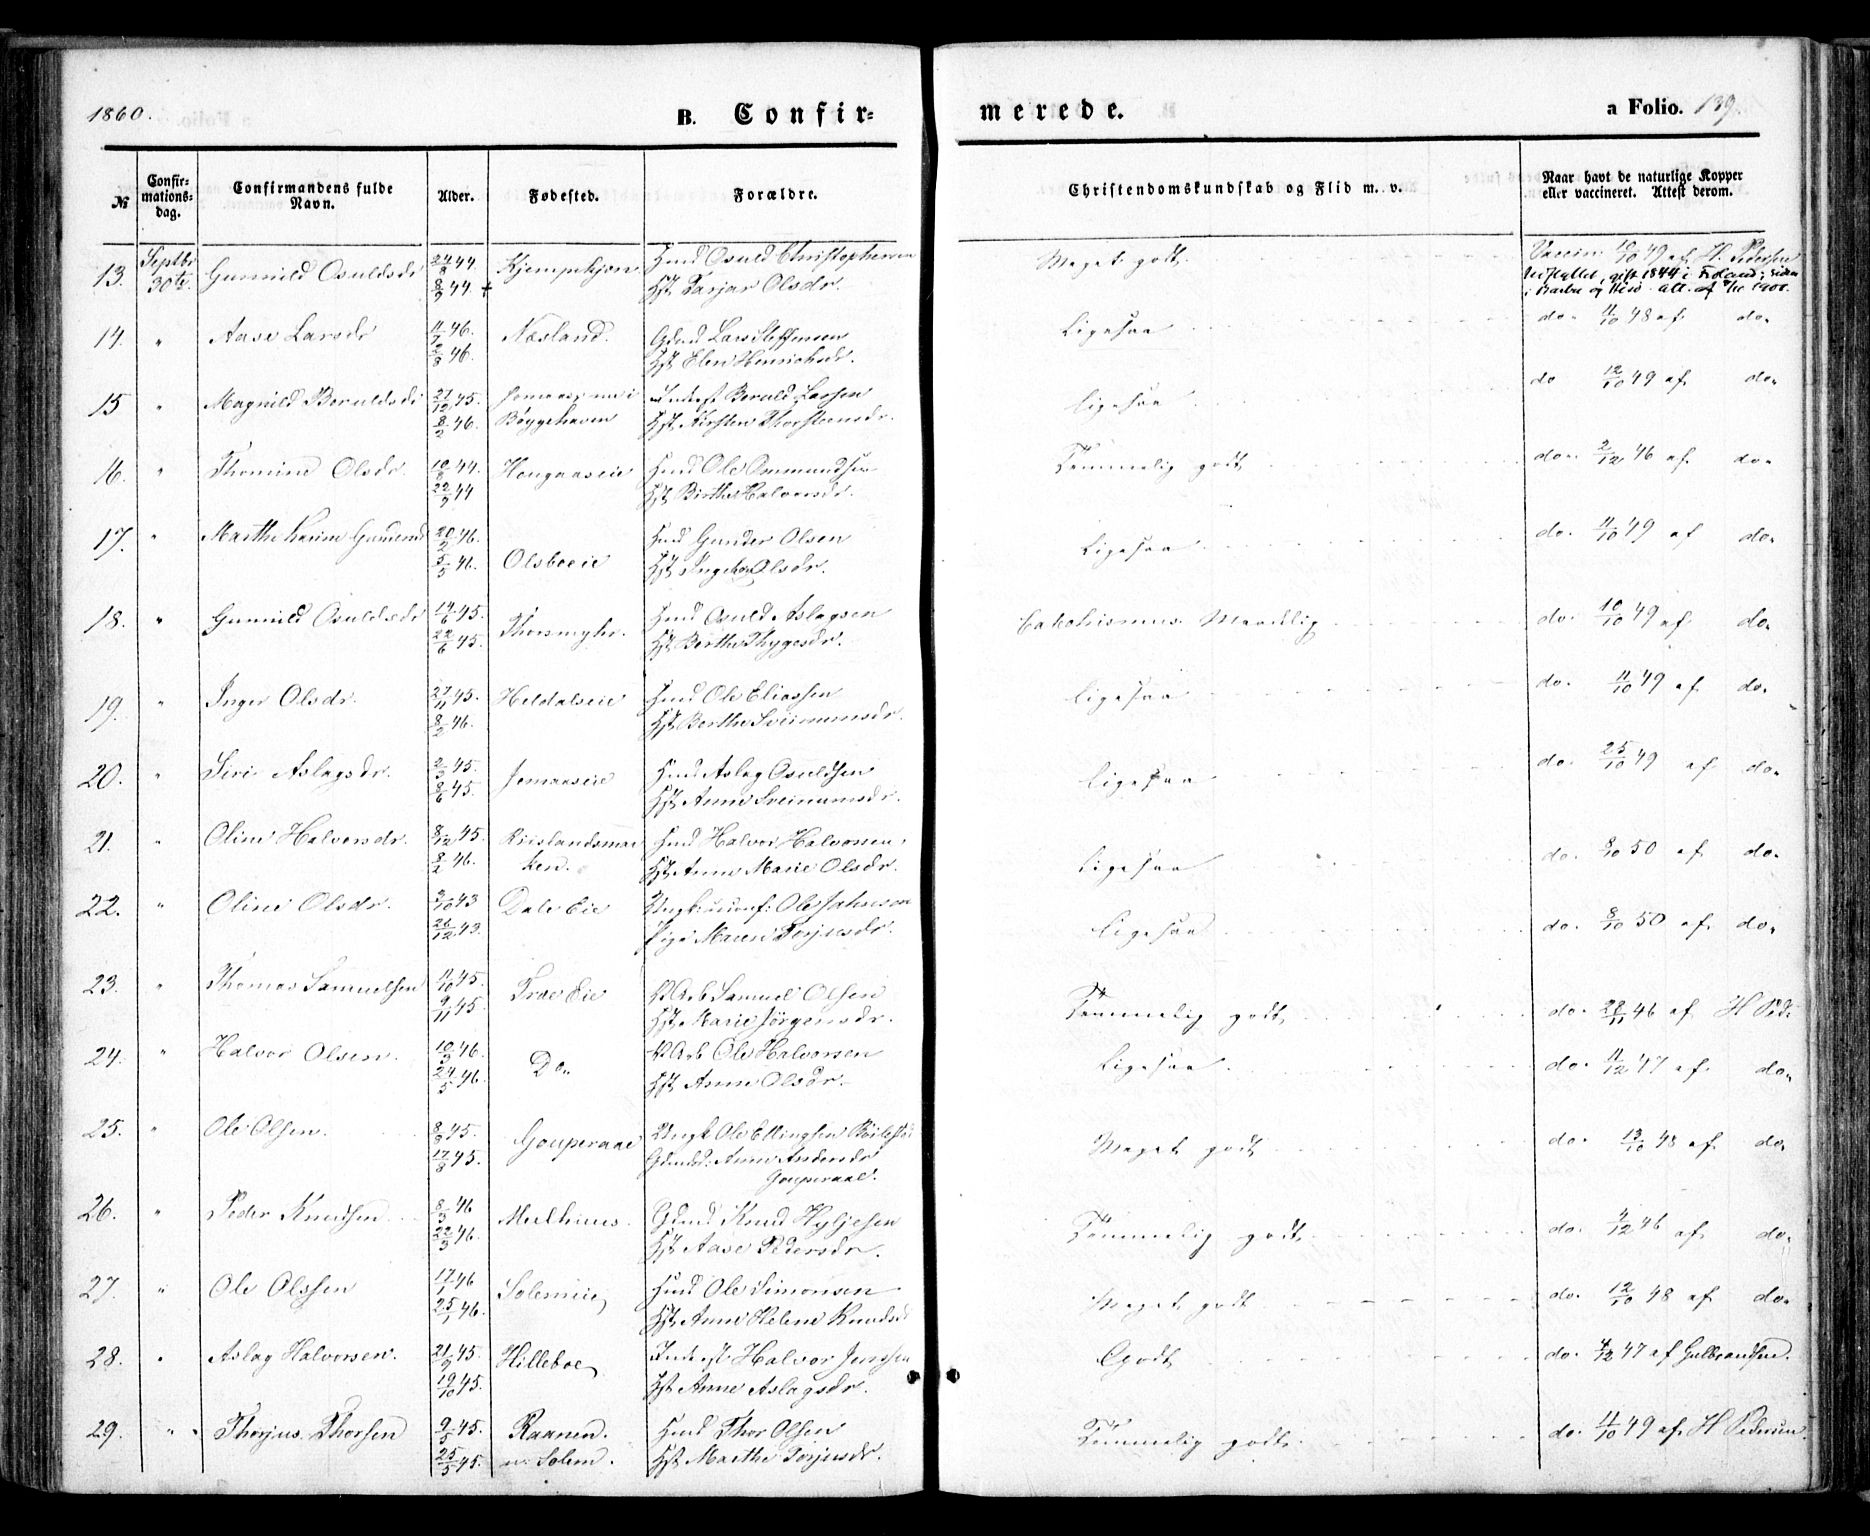 1860.
B. Confir=
merede.
a Folio. 139.
№
Confir=
mations=
dag.
Confirmandens fulde
Navn.
Alder.
Fødested.
Forældre.
Christendomskundskab og Flid m. v.
Naar havt de naturlige Kopper
eller vaccineret. Attest derom.
13. Septbr 30te Gunnild Osuldsdr 24/8 44. 8/9 44. + Kjempekjen Hmd Osuld Christophersen
Hst Tarjar Olsdr. Meget godt. Vaccin. 10/10 49 af H. Pedersen
14. " Aase Larsdr 11/7 46. 2/8 46. Næsland. Gdmd Lars Steffensen
Hst Elen Henrichsdr. Ligesaa do. 11/10 48 af do.
15 " Magnild Boruldsdr 27/12 45. 8/2 46. Bøggehaven Inderst Boruld Larsen
Hst Kirsten Thorstensdr. Ligesaa do 12/10 49 af do.
16. " Thomine Olsdr. 10/8 44. 22/9 44 Hougaaseie Hmd Ole Osmundsen
Hst Birthe Halvorsdr. Temmelig godt do. 2/12 46 af do.
17. " Marthe Karine Gundersd 20/2 46. 5/5 46. Olsboeie Hmd Gunder Olsen
Hst Ingeborg Olsdr. Ligesaa do. 11/10 49 af do.
18. " Gunnild Osuldsdr 14/6 45. 22/6 45. Thorsmyhr. Hmd Osuld Aslagsen
Hst Berthe Thygesdr. Catechismus. Maadelig do. 10/10 49 af do.
19. " Inger Olsdr. 27/11 45. 8/2 46. Heldalseie Hmd Ole Eliassen
Hst Berthe Sveinumsdr. Ligesaa do. 11/10 49 af do.
20. " Siri Aslagsdr. 2/3 45. 8/6 45. Jomaaseie Hmd Aslag Osuldsen
Hst Anne Sveinumsdr. Ligesaa do. 25/10 49 af do.
21. " Oline Halvorsdr. 8/12 45. 8/2 46. Riislandsmar
ken. Hmd Halvor Halvorsen.
Hst Anne Marie Olsdr. Ligesaa do. 8/10 50 af do.
22. " Oline Olsdr. 3/10 43 26/12 43. Dale Eie Ungk: Ole Johnsen
Pige Maren Torjusdr. Ligesaa do. 8/10 50 af do.
23. " Thomas Samuelsen 11/10 45. 9/11 45. Froe Eie Arb Samuel Olsen
Hst Marie Jörgensdr. Temmelig godt do. 28/11 46 af H Ped.
24. " Halvor Olsen. 10/3 46. 24/5 46. Do. Arb Ole Halvorsen
Hst Anne Olsdr. Ligesaa. do. 11/12 47 af do.
25. " Ole Olsen. 8/3 45. 17/8 45. Gouperaae Ungk Ole Ellingsen
Anne Andersdr
Gouperaae. Meget godt do. 13/10 48 af do.
26. " Peder Knudsen 8/3 46 22/3 46. Mulhuus. Gdmd Knud Hyljesen
Hst Aase Pedersdr. Temmelig godt. do. 4/12 46 af do.
27. " Ole Olssen 17/1 46 25/1 46. Solemeie Hmd Ole Simonsen
Hst Anne Helene Knudsd Meget godt do. 12/10 48 af do.
28. " Aslag Halvorsen. 21/9 45. 19/10 45. Hilleboe Inderst Halvor Jensen
Hst Anne Aslagsdr. Godt do. 4/12 47 af Gulbrandsen.
29. " Thorjus Thorsen 9/5 45. 25/5 45. Raanen.
Solem. Hmd Thor Olsen
Hst Marthe Torjusdr. Temmelig godt. do. 11/10 49 af H Pedersen.